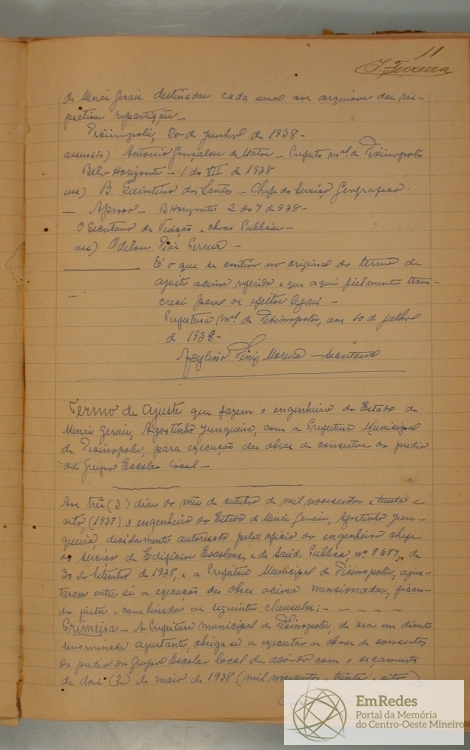 11
J. Ferreira
de Minas Gerais destinadas cada uma aos arquivos das res-
pectivas repartições
Pirimopolis, 20 de Junho de 1938 -
assinado) Antonio Gonçalves de Mattos - Prefeito mal. de
Belo Horizonte - 1 do VII de 1938
as) B. Quintino dos Santos - Chefe do Serviço Geografico.
- Aprovo - B Horizonte 2 do 7 de 938 -
O Secretario da Viação e Obras Publicas -
as) Odilon Dias Pereira -
E' o que se contém no original do termo de
ajuste acima referido e que aqui fielmente trans-
crevi para os efeitos legais -
Prefeitura Mal. de aos 10 de Julho
de 1938 -
Diniz Moreira - Secretario
Termo de Ajuste que fazem o engenheiro do Estado de
Minas Gerais, Agostinho Junqueira, com a Prefeitura Municipal
de para execução das obras de consertos do predio
do Grupo Escolar local -
Aos três (3) dias do mês de outubro de mil novecentos e trinta e
oito, (1938) o engenheiro do Estado de Minas Gerais, Agostinho Jun-
queira, devidamente autorizado pelo oficio do engenheiro chefe
do Serviço de Edificios Escolares e de Saúde Publica nº 8687, de
30 de Setembro de 1938, e a Prefeitura Municipal de ajus-
taram entre si a execução das obras acima mencionadas, fican-
do justo e combinado as seguintes clausulas: -
Primeira - A Prefeitura Municipal de de ora em diante
denominada ajustante, obriga-se a executar as obras de consertos
do predio do Grupo Escolar local de acôrdo com o orçamento
de dois (2) de maio de 1938 (mil novecentos e trinta e oito)
EmRedes
Portal da Memória
do Centro-Oeste Mineiro